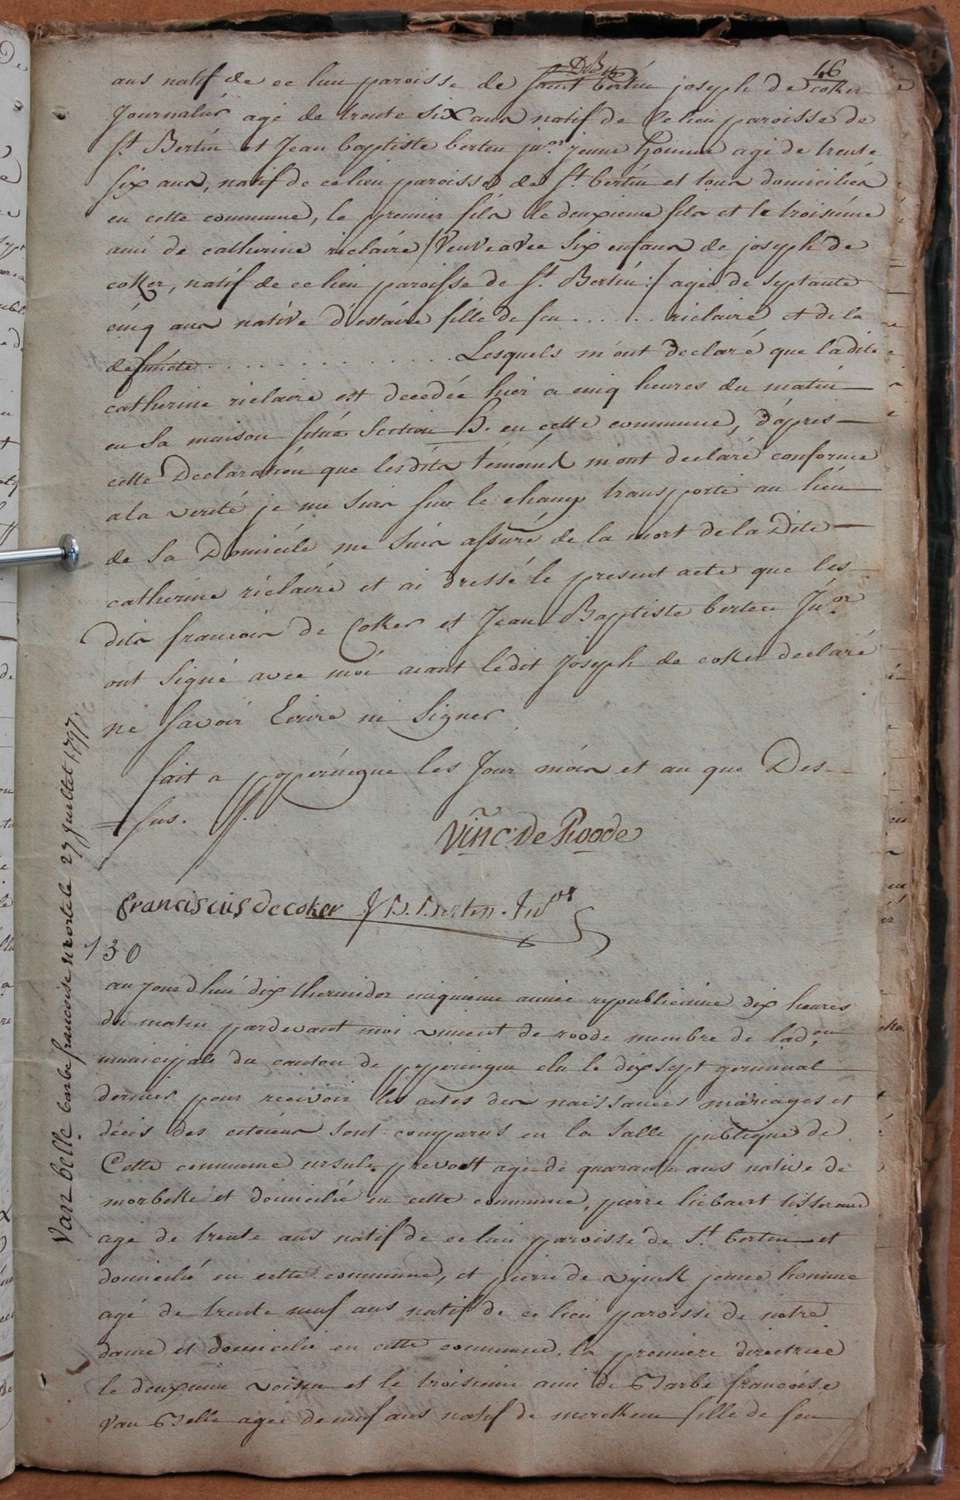 16
ans natif de ce lieu paroisse de saint bertin joseph de coker
Journalier agé de trente six ans natif de ce lieu paroisse de
St Bertin et Jean baptiste berten junor jeune homme agé de trente
six ans, natif de ce lieu paroisse de St bertin et tous domiciliés
en cette commune, le premier fils le deuxieme fils et le troisiéme
ami de catherine riclaire /veuve avec six enfans de joseph de
coker, natif de ce lieu paroisse de St Bertin:/ agée de septante
cinq ans native d'estaire fille de feu . . . . . riclaire et de la
defunte . . . . . . . . . . . . . . Lesquels m'ont declaré que ladite
catherine riclaire est decedée hier a cinq heures du matin
en sa maison située Section B. en cette commune, d'apres
cette Declaration que lesdits témoins m'ont declaré conforme
a la verité je me suis sur le champ transporté au lieu
de sa Domicile me suis assuré de la mort de la Dite
catherine riclaire et ai dressé le present acte que les
dits francois de Coker et Jean Baptiste berten Junor
ont signé avec moi aiant ledit Joseph de coker declaré
ne savoir Ecrire ni signer
fait a poperingue les Jour mois et an que Des-
=sus.
Vinc. De Roode
franciscus de coker J B Berten Junor
130
Van belle barbe francoise morte le 27 juillet 1797
aujourd'hui dix thermidor cinquieme année republicaine dix heures
du matin pardevant moi vincent de roode membre de l'adon
municipale du canton de poperingue elu le dix sept germinal
dernier pour recevoir les actes des naissances mariages et
décès des citoiens sont comparus en la salle publique de
Cette commune ursule prevost agé de quarante ans native de
morbeke et domiciliée en cette commune, pierre liebaert tisserand
agé de trente ans natif de ce lieu paroisse de St bertin et
domicilié en cette commune, et pierre de wynck jeune homme
agé de trente neuf ans natif de ce lieu paroisse de notre
dame et domicilié en cette commune. la premiere directrice
le deuxieme voisin et le troisieme ami de Barbe francoise
Van Belle agée de neuf ans natif de merckem fille de feu